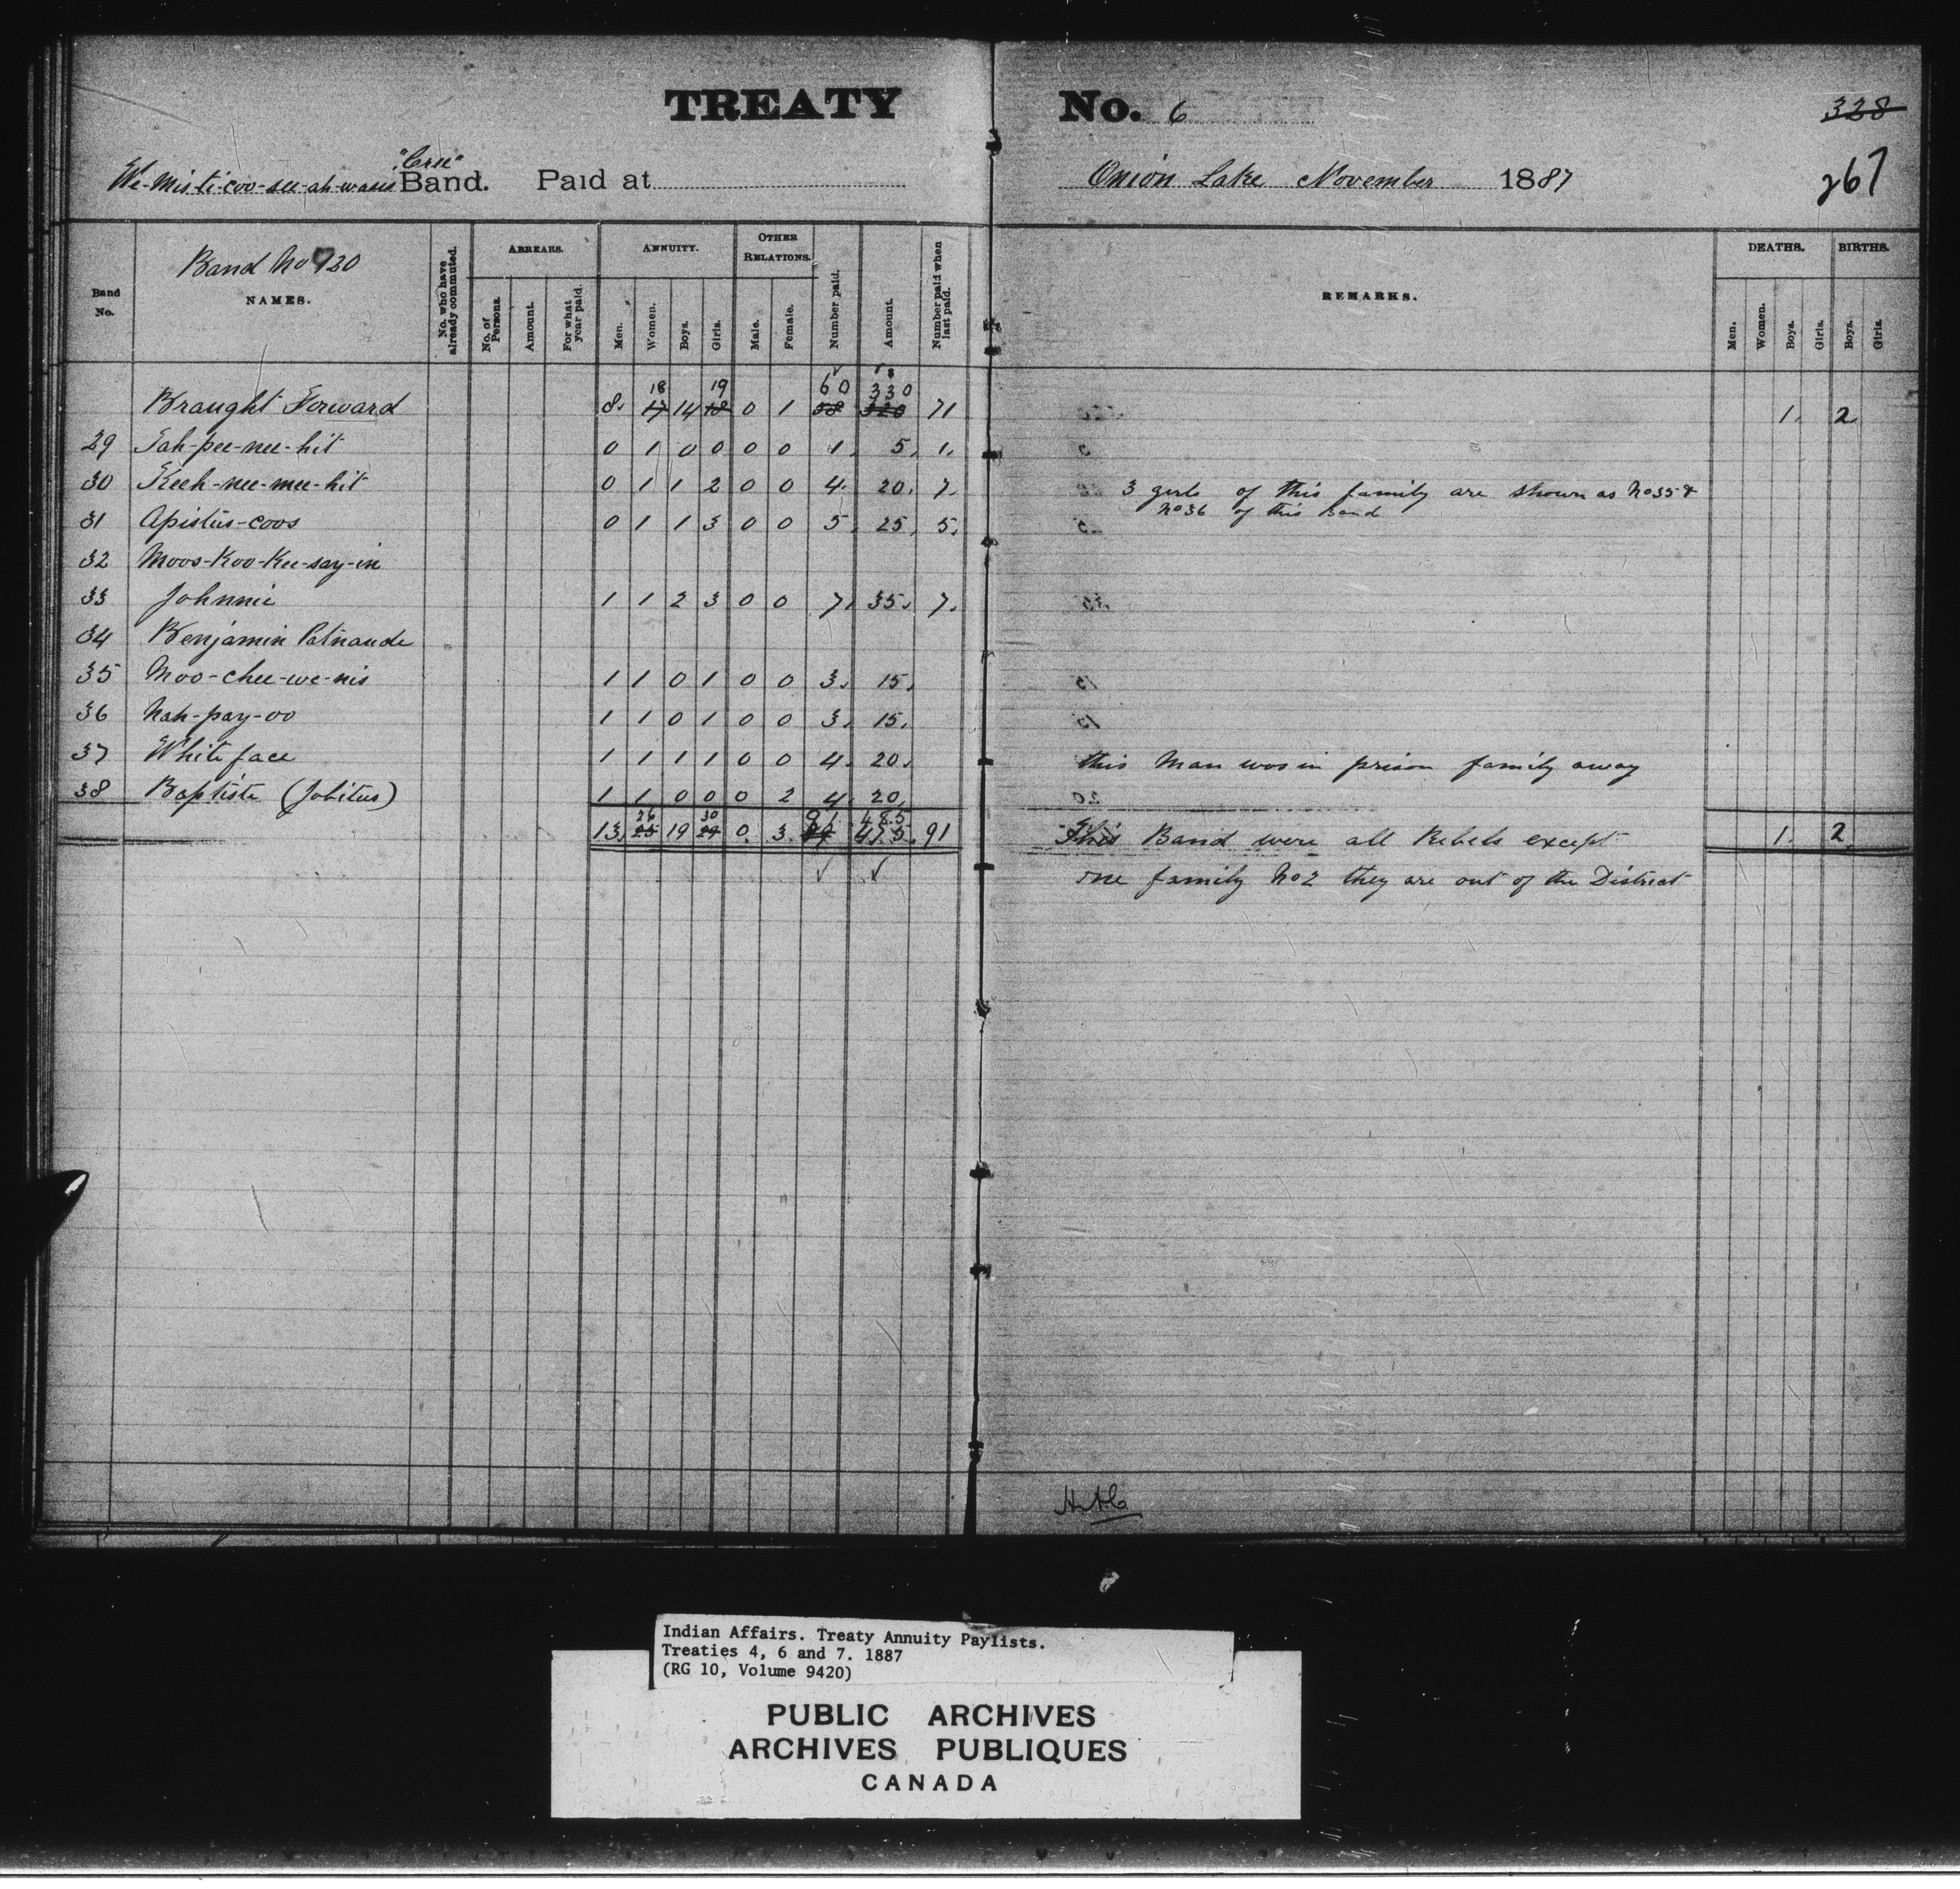 TREATY No. 6
328
"Cree"
We-mis-ti-coo-see-ah-wasis Band. Paid at Onion Lake November 1887
267
Band No 120
Band No.
NAMES.
No. who have already commuted.
ARREARS.
No. of Persons.
Amount.
For what year paid.
ANNUITY.
Men.
Women.
Boys.
Girls.
OTHER RELATIONS.
Male.
Female.
Number paid.
Amount.
Number paid when last paid.
REMARKS.
DEATHS.
Men.
Women.
Boys.
Girls.
BIRTHS.
Boys.
Girls.
18 19 60 330
Braught Forward 8. 17 14 18 0 1 58 320 71 1. 2
29 Sah-pee-nee-hit 0 1 0 0 0 0 1. 5. 1.
30 Keeh-nee-mee-hit 0 1 1 2 0 0 4. 20. 7. 3 girls of this family are shown as No 35 &
No 36 of this Band
31 Apistus-coos 0 1 1 3 0 0 5. 25. 5.
32 Moos-Koo-Kee-say-in
33 Johnnie 1 1 2 3 0 0 7. 35. 7.
34 Benjamin Patnaude
35 Moo-chee-we-nis 1 1 0 1 0 0 3. 15.
36 Nah-pay-oo 1 1 0 1 0 0 3. 15.
37 White face 1 1 1 1 0 0 4. 20. this Man was in prison family away
38 Baptiste (Jobitus) 1 1 0 0 0 2 4. 20.
26 30 91 485
13. 25 19 29 0. 3. 89 475. 91 This Band were all Rebels except 1. 2
one family No 2 they are out of the District
Indian Affairs. Treaty Annuity Paylists.
Treaties 4, 6 and 7. 1887
(RG 10, Volume 9420)
PUBLIC ARCHIVES
ARCHIVES PUBLIQUES
CANADA